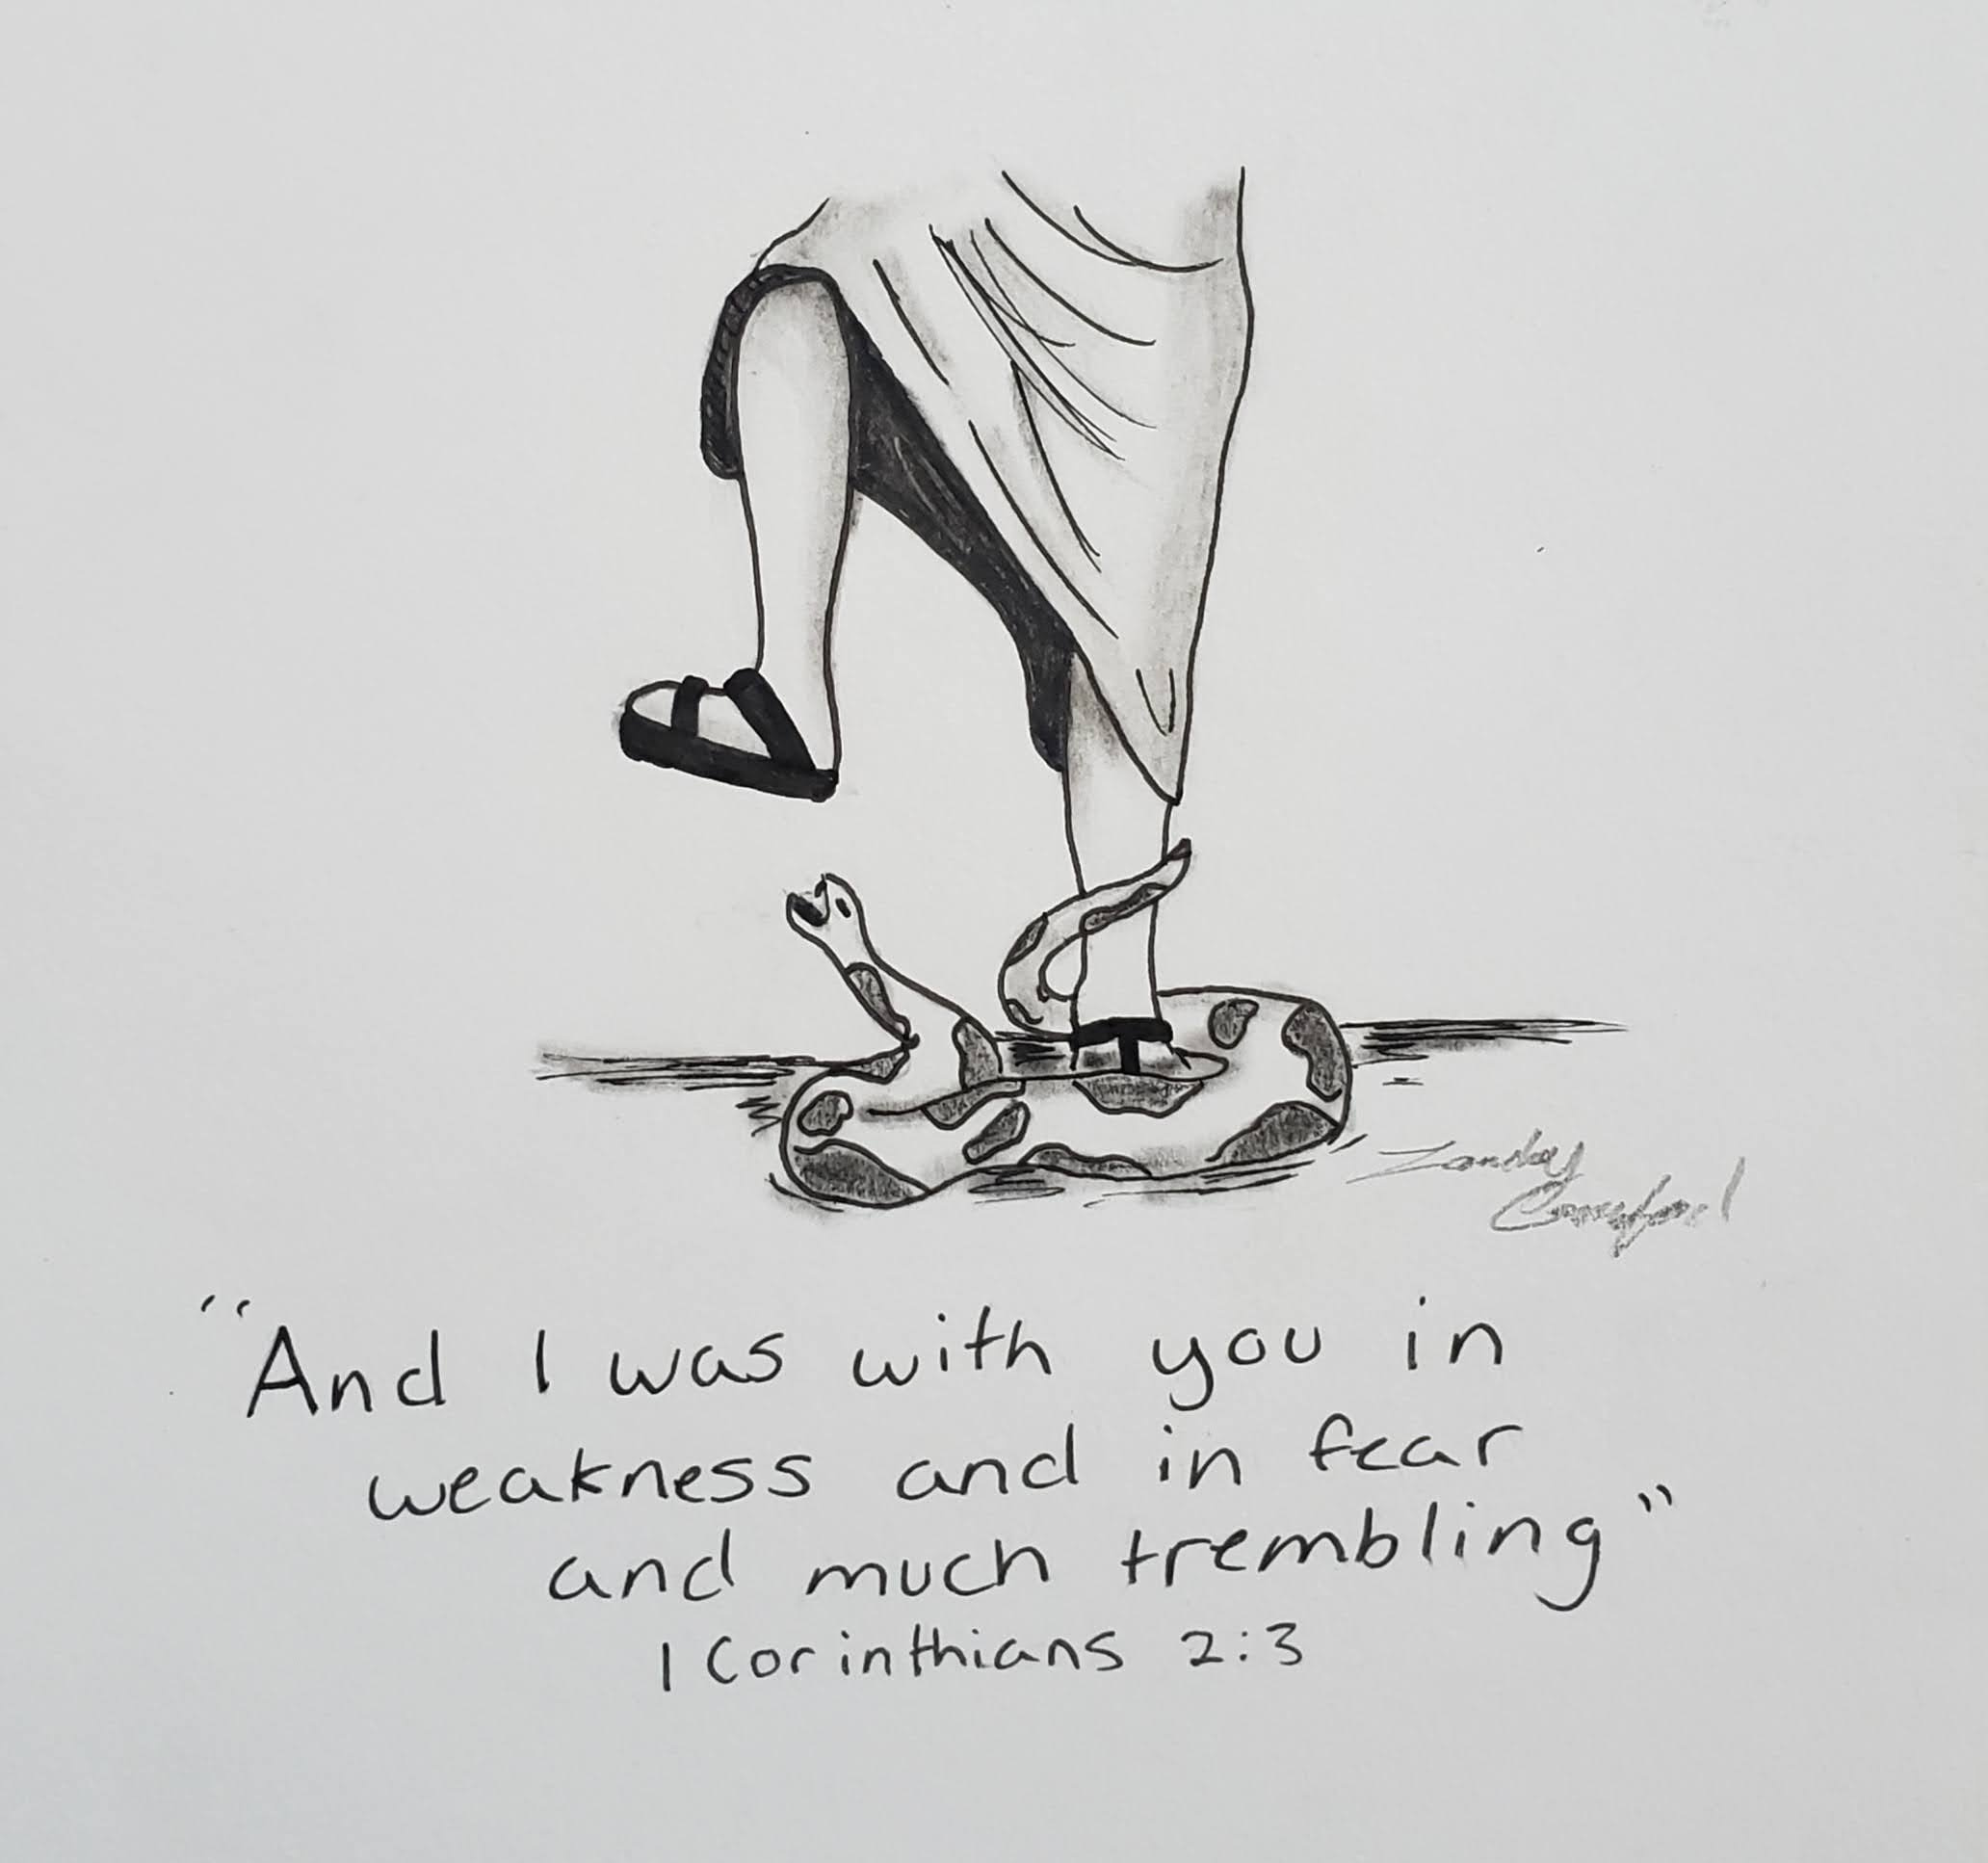 Crawford
"And I was with you in
weakness and in fear
and much trembling"
1 Corinthians 2:3